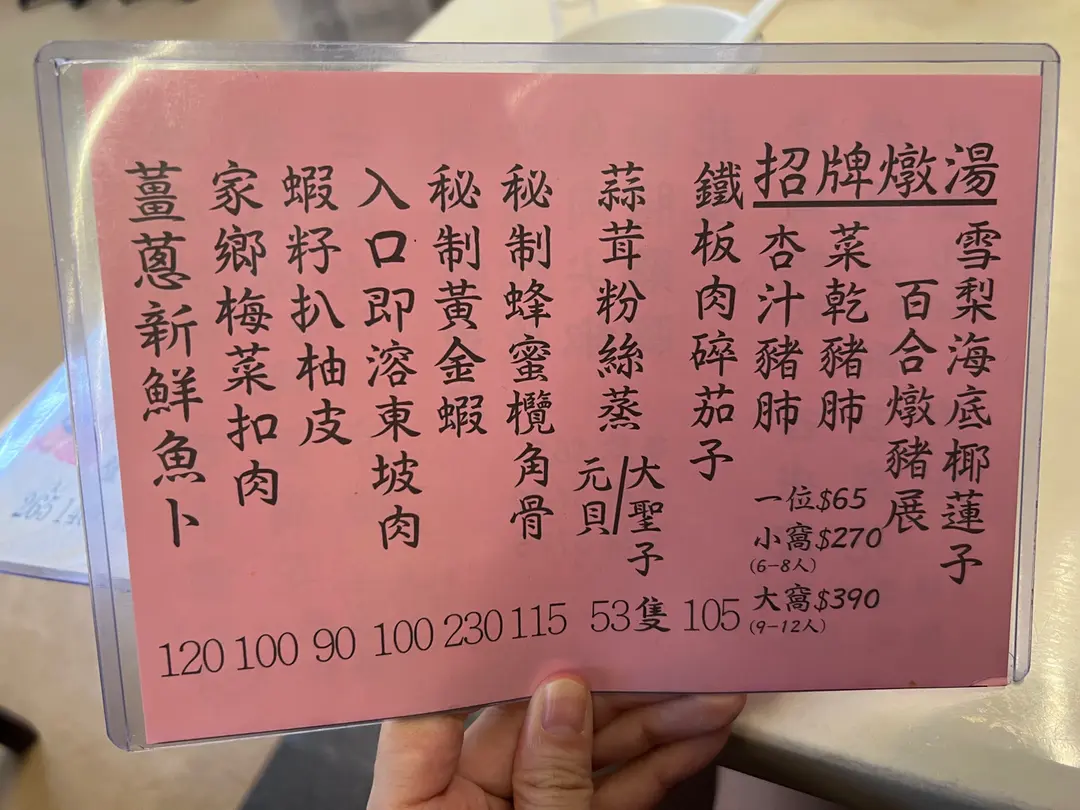 招牌燉湯
雪梨海底椰蓮子
百合燉豬展
菜乾豬肺
杏汁豬肺
一位$65
小窩$270
(6-8人)
大窩$390
(9-12人)
鐵板肉碎茄子
105
蒜茸粉絲蒸
大聖子/
元貝
53隻
秘制蜂蜜欖角骨
115
秘制黃金蝦
230
入口即溶東坡肉
100
蝦籽扒柚皮
90
家鄉梅菜扣肉
100
薑蔥新鮮魚卜
120